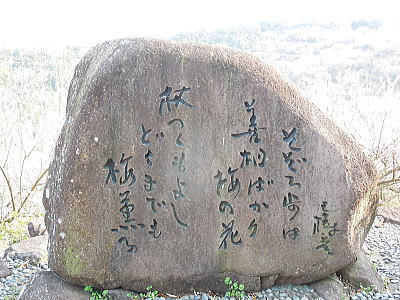 そぞろ歩は
善相ばかり
梅の花
杖つくもよし
どこまでも
梅薫る